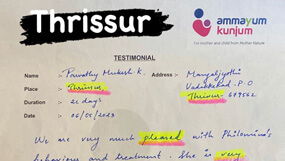 Thrissur
ammayum
kunjum
For mother and Child from Mother Nature
TESTIMONIAL
Name :- Parvathy Mukesh K. Address :- Mangaljyothi
Place :- Thrissur Vadakkekad P.O
Duration :- 21 days Thrissur - 679562
Date :- 06/05/2023
We are very much pleased with Philomina's
behaviour and treatment. She is very